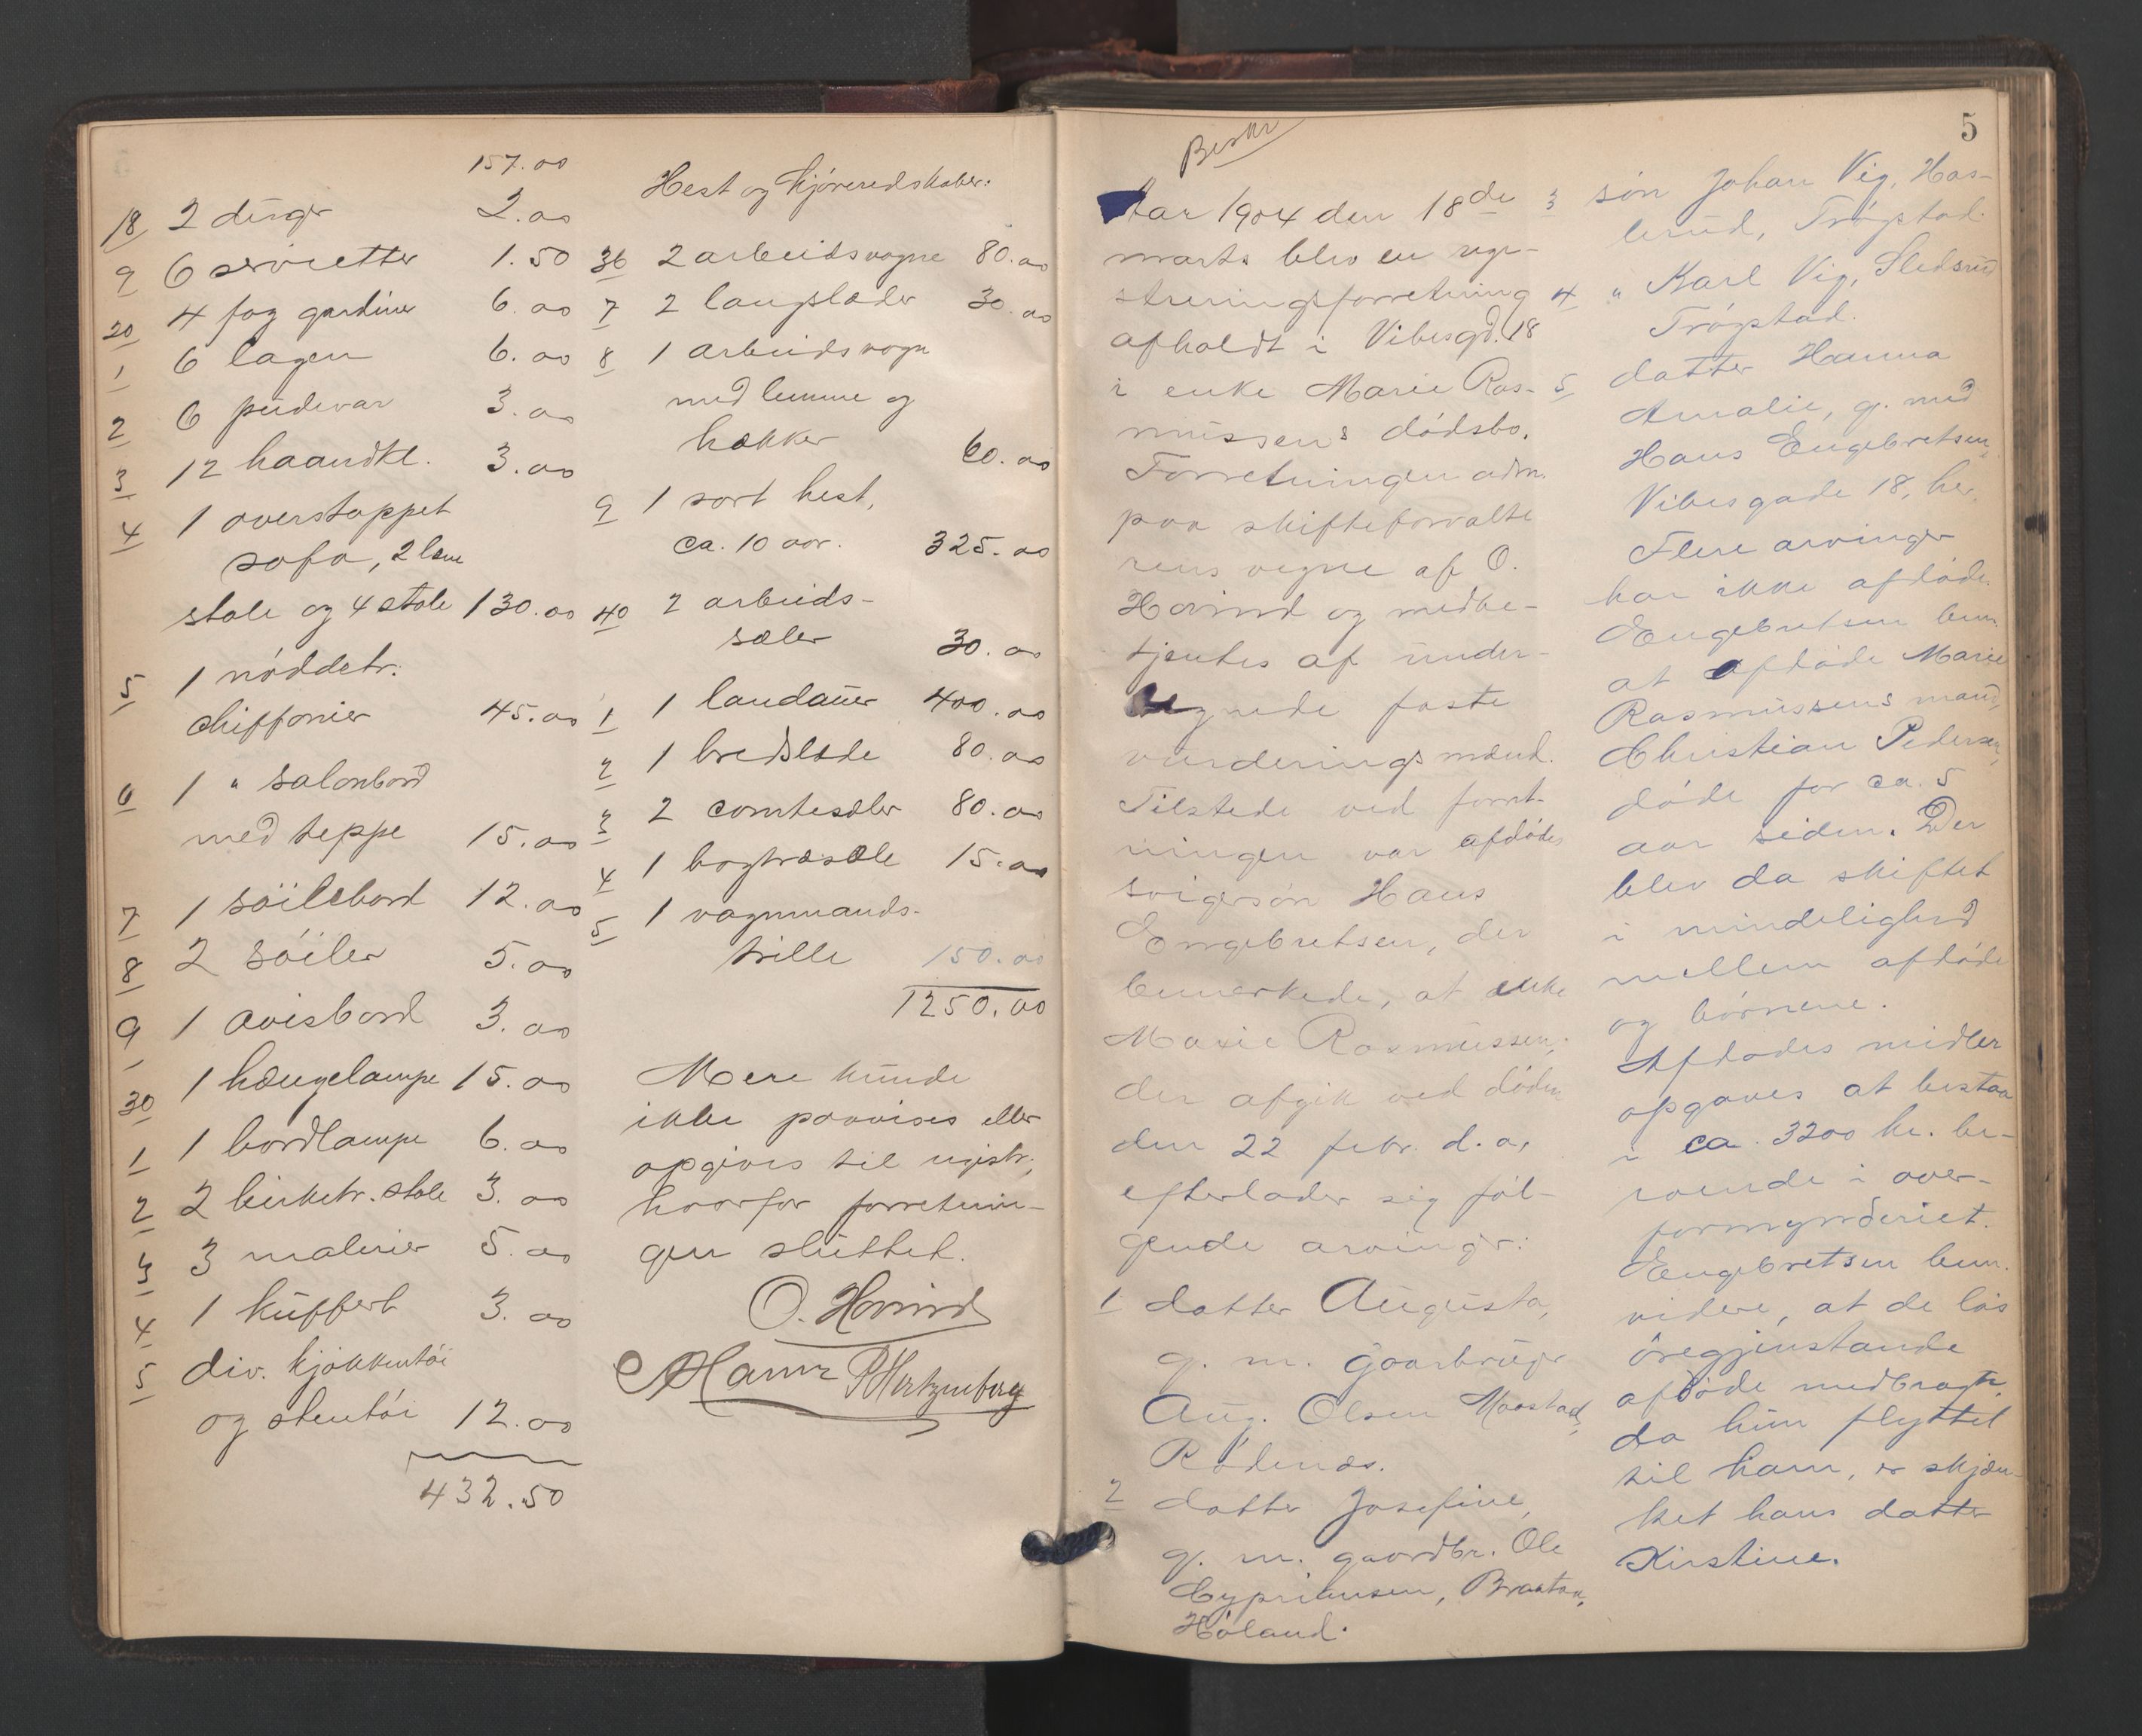 157.00
18 2 duger 2.00
9 6 servietter 1.50
20 4 fag gardiner 6.00
1 6 lagen 6.00
2 6 pudevar 3.00
3 12 haandkl. 3.00
4 1 overstoppet
sofa, 2 læne
stole og 4 stole 130.00
5 1 nøddetr.
chiffonier 45.00
6 1 " salonbord
med teppe 15.00
7 1 söilebord 12.00
8 2 söiler 5.00
9 1 avisbord 3.00
30 1 hængelampe 15.00
1 1 bordlampe 6.00
2 2 birketr. stole 3.00
3 3 malerier 5.00
4 1 kuffert 3.00
5 div. kjøkkentøi
og stentøi 12.00
432.50
Hest og kjøreredskaber:
36 2 arbeidsvogne 80.00
7 2 langslæder 30.00
8 1 arbeidsvogn
med lemme og
hækker 60.00
9 1 sort hest,
ca. 10 aar. 325.00
40 2 arbeids-
sæler 30.00
1 1 landauer 400.00
2 1 bredslæde 80.00
3 2 comtesæler 80.00
4 1 bogtræsæle 15.00
5 1 vognmands-
trille 150.00
1250.00
Mere kunde
ikke paavises eller
opgives til registr.,
hvorfor forretnin-
gen sluttet.
O. Hovind
Hamr P Hertzenberg
5
Beskr
Aar 1904 den 18de
marts blev en regi-
streringsforretning
afholdt i Vibesgd. 18
i enke Marie Ras-
mussens dødsbo.
Forretningen adm.
paa skifteforvalte
rens vegne af O.
Hovind og medbe-
tjentes af under-
tegnede faste
vurderingsmænd.
Tilstede ved forret-
ningen var afdødes
svigersøn Hans
Engebretsen, der
bemerkede, at enke
Marie Rasmussen,
der afgik ved døden
den 22 febr. d. a.
efterlader sig føl-
gende arvinger:
1 datter Augusta,
g. m. gaarbruger
Aug. Olsen Maastad,
Rødenæs.
2 datter Josefine,
g. m. gaardbr. Ole
Cypriansen, Braatan,
Høland.
3 søn Johan Vig, Has-
lerud, Trøgstad.
4 " Karl Vig, Sledsrud
Trøgstad.
5 datter Hanna
Amalie, g. med
Hans Engebretsen,
Vibesgade 18, her.
Flere arvinger
har ikke afdøde.
Engebretsen bem.
at afdøde Marie
Rasmussens mand,
Christian Pedersen,
døde for ca. 5
aar siden. Der
blev da skiftet
i mindelighed
mellem afdøde
og børnene.
Afdødes midler
opgaves at bestaa
i ca. 3200 kr. be-
roende i over-
formynderiet.
Engebretsen bem.
videre, at de løs
øregjenstande
afdøde medbragte,
da hun flyttet
til ham, er skjæn-
ket hans datter
Kirstine.